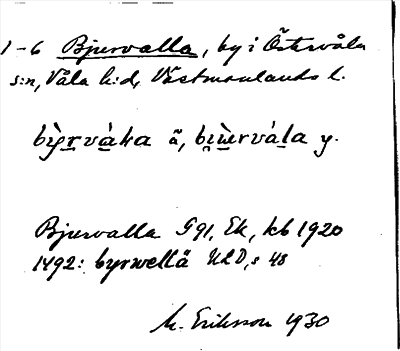 1-6 Bjurvalla, by i Östervåla
s:n, Våla h:d, Västmanlands l.
ä, y.
Bjurvalla G 91, Ek, kb 1920
1492: byrwellä ULD, s 48
M. Eriksson 1930